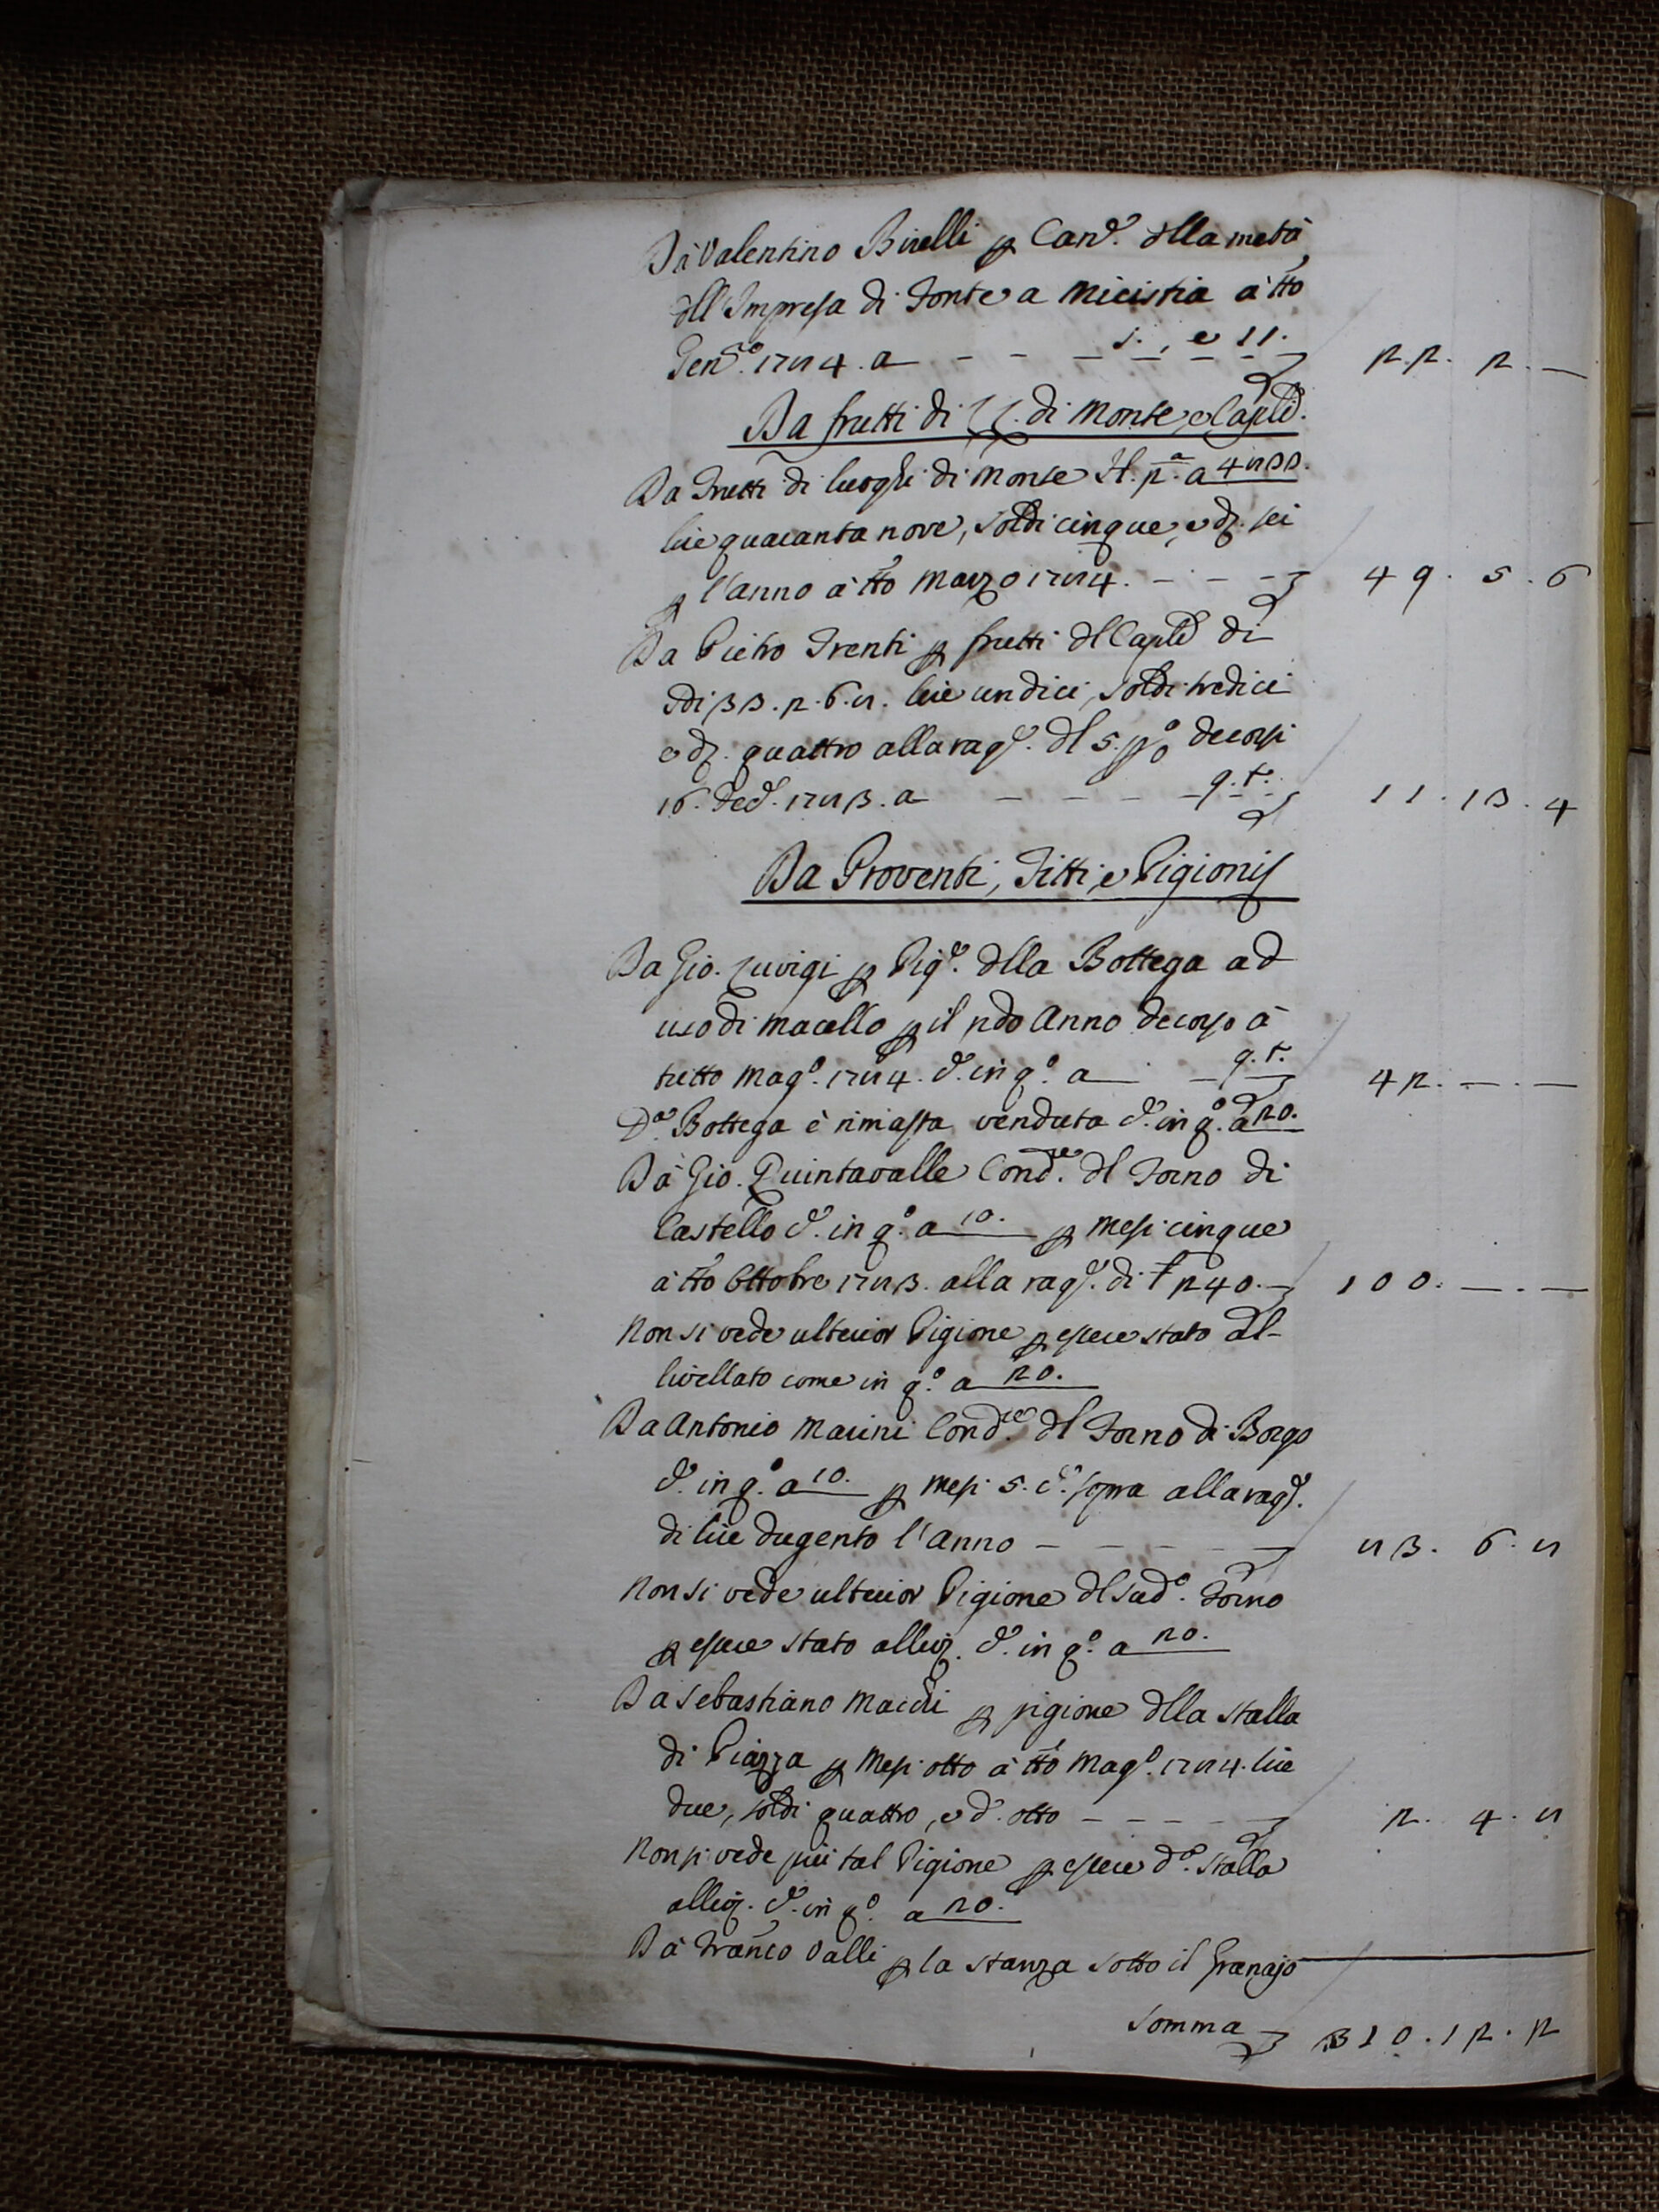 Dà Valentino Birelli p Can.e dlla metà
dll'Impresa di Fonte a Micistia à tto
Gen.o 1784. a 1., e 11. 22. 2. —
Da frutti di LL. di Monte, e Capli.
Da Frutti di luoghi di Monte H. p.a a 4833.
lire quaranta nove, soldi cinque, e d. sei
p l'anno à tto Marzo 1784. 49. 5. 6
Da Pietro Trenti p frutti dl Capli di
di 33. 2. 6. 8. lire undici, soldi tredici
e d. quattro alla rag.e dl 5. p o decorsi
16. Dec.e 1783. a q.t. 11. 13. 4
Da Proventi, Fitti, e Pigioni
Da Gio. Luvigi p Pig.e dlla Bottega ad
uso di Macello p il 2do Anno decorso à
tutto Mag.o 1784. C.e in q.o a q.t. 42. — . —
D.a Bottega è rimasta venduta C.e in q.o a 20.
Dà Gio. Quintavalle Cond.re dl Forno di
Castello C.e in q.o a 10. p Mesi cinque
à tto Ottobre 1783. alla rag.e di £ 240. 100. — . —
Non si vede ulterior Pigione p essere stato al-
livellato come in q.o a 20.
Da Antonio Marini Cond.re dl Forno di Borgo
C.e in q.o a 10. p Mesi 5. C.e sopra alla rag.e
di lire dugento l'Anno 83. 6. 8
Non si vede ulterior Pigione dl sud.o Forno
p essere stato alliv. C.e in q.o a 20.
Da Sebastiano Macchi p pigione dlla Stalla
di Piazza p Mesi otto à tto Mag.o 1784. lire
due, soldi quattro, e d. otto 2. 4. 8
Non si vede più tal Pigione p essere d.a Stalla
alliv. C.e in q.o a 20.
Dà Franco Valli p la stanza sotto il Granajo
Somma 310. 12. 2